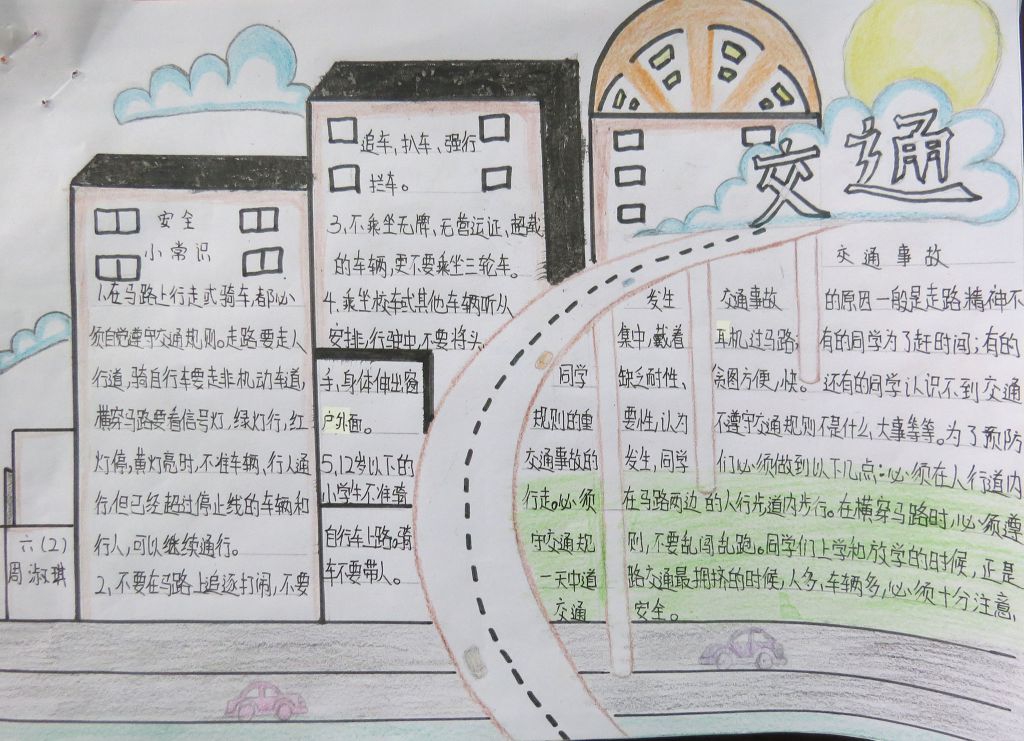 交通
安全
小常识
1、在马路上行走或骑车,都必
须自觉遵守交通规则。走路要走人
行道,骑自行车要走非机动车道,
横穿马路要看信号灯,绿灯行,红
灯停,黄灯亮时,不准车辆、行人通
行,但已经超过停止线的车辆和
行人,可以继续通行。
2、不要在马路上追逐打闹,不要
追车,扒车、强行
拦车。
3、不乘坐无牌,无营运证、超载
的车辆,更不要乘坐三轮车。
4.乘坐校车或其他车辆听从
安排,行驶中,不要将头、
手,身体伸出窗
户外面。
5、12岁以下的
小学生不准骑
自行车上路。骑
车不要带人。
交通事故
发生 交通事故 的原因一般是走路精神不
集中,戴着 耳机过马路; 有的同学为了赶时间;有的
同学 缺乏耐性、 贪图方便,快。 还有的同学认识不到交通
规则的重 要性,认为 不遵守交通规则不是什么大事等等。为了预防
交通事故的 发生,同学 们必须做到以下几点:必须在人行道内
行走。必须 在马路两边的人行步道内步行。在横穿马路时,必须遵
守交通规 则,不要乱闯乱跑。同学们上学和放学的时候,正是
一天中道 路交通最拥挤的时候,人多、车辆多,必须十分注意
交通 安全。
六(2)
周淑琪